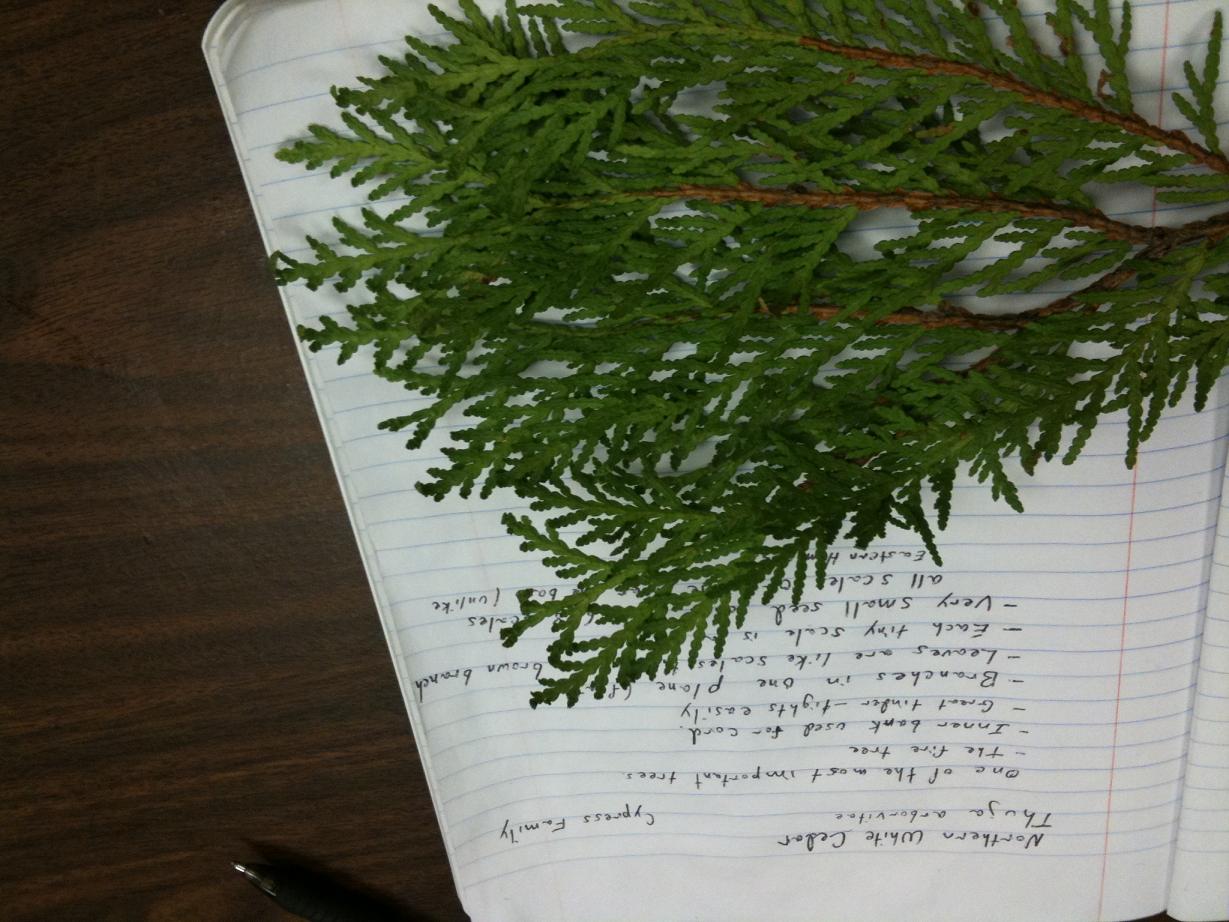 Northern White Cedar
Thuja arborvitae Cypress Family
One of the most important trees.
- The fire tree
- Inner bark used for cord.
- Great tinder - lights easily
- Branches in one plane brown branch
- Leaves are like scales
- Each tiny scale is scales
- Very small seed (unlike
all scale
Eastern